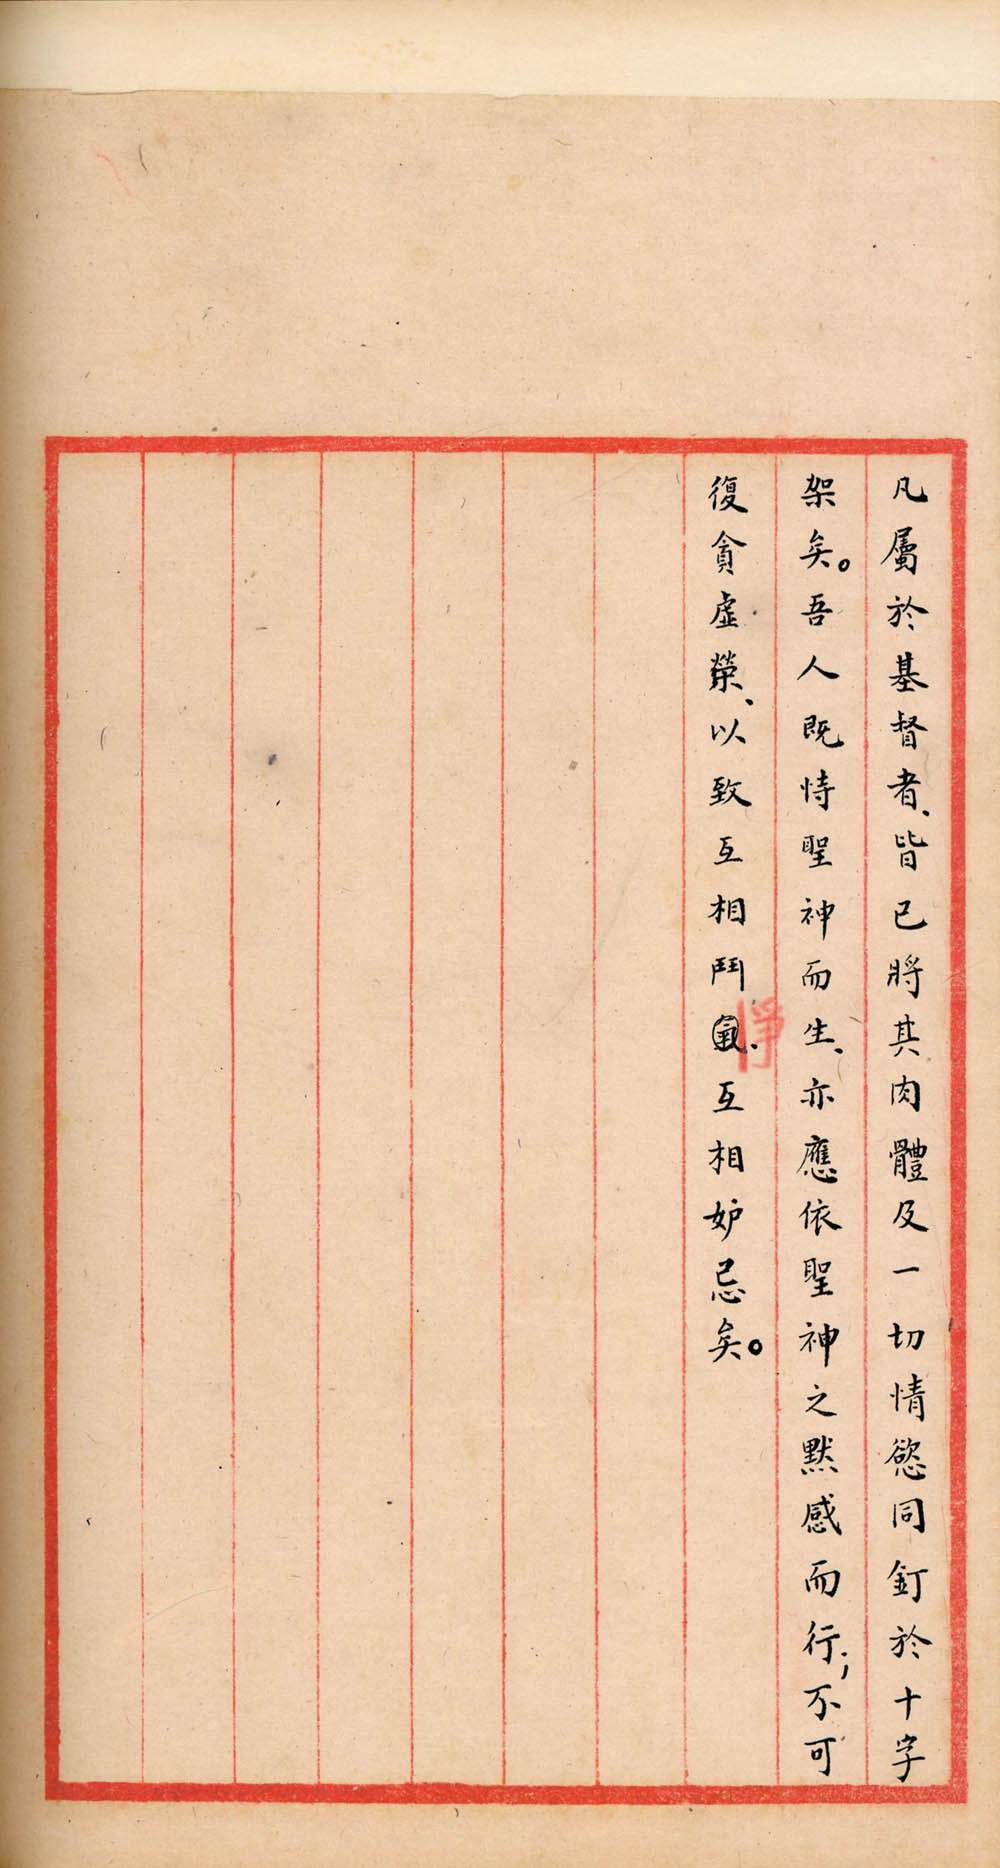 凡屬於基督者、皆已將其肉體及一切情慾同釘於十字
架矣。吾人既恃聖神而生、亦應依聖神之默感而行；不可
復貪虛榮、以致互相鬥氣、互相妒忌矣。
諍